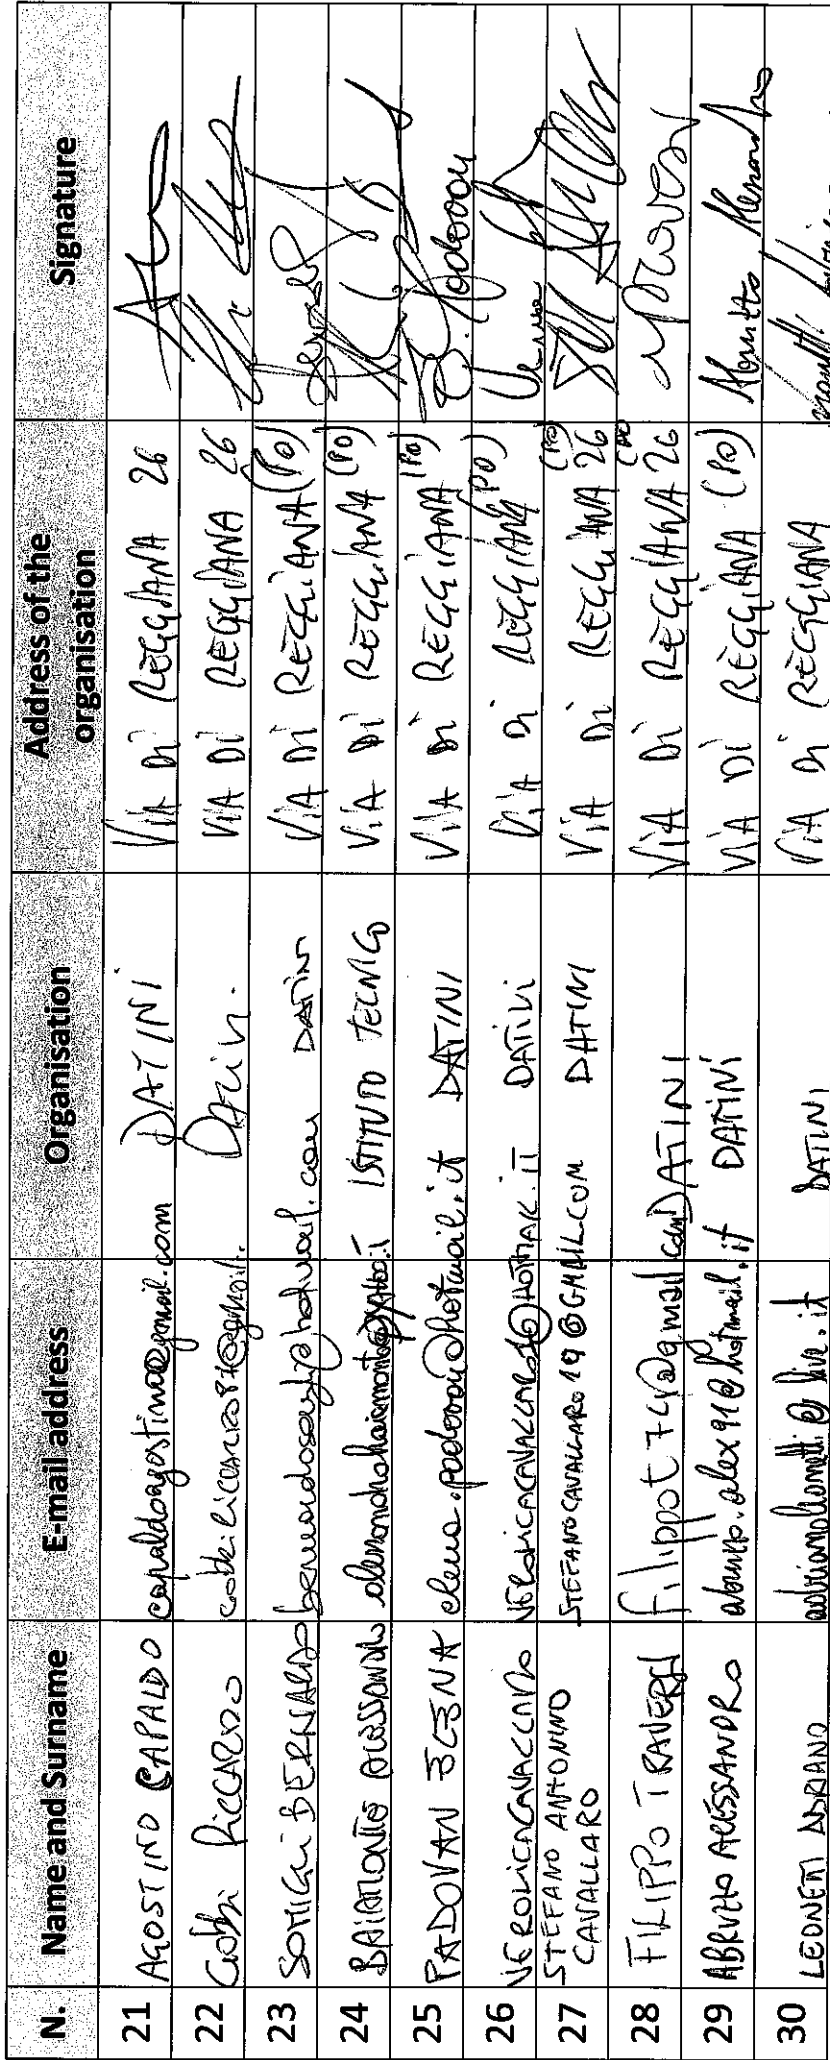 N. Name and Surname E-mail address Organisation Address of the organisation Signature
21 AGOSTINO CAPALDO capaldoagostino@gmail.com DATINI VIA DI REGGIANA 26
22 Gobbi RICCARDO DATINI VIA DI REGGIANA 26
23 SOMIGLI BERNARDO DATINI VIA DI REGGIANA (PO)
24 BAIAMONTE ALESSANDRO ISTITUTO TECNICO VIA DI REGGIANA (PO)
25 PADOVAN ELENA elena.padovan@hotmail.it DATINI VIA DI REGGIANA (PO) E. Padovan
26 VERONICA CAVALLARO DATINI VIA DI REGGIANA (PO)
27 STEFANO ANTONINO CAVALLARO STEFANOCAVALLARO19@GMAIL.COM DATINI VIA DI REGGIANA 26 (PO)
28 FILIPPO TRAVERSI filippot74@gmail.com DATINI VIA DI REGGIANA 26 (PO)
29 ABRUZZO ALESSANDRO abruzzo.alex91@hotmail.it DATINI VIA DI REGGIANA (PO)
30 LEONETTI ADRIANO adrianoleonetti@live.it DATINI VIA DI REGGIANA